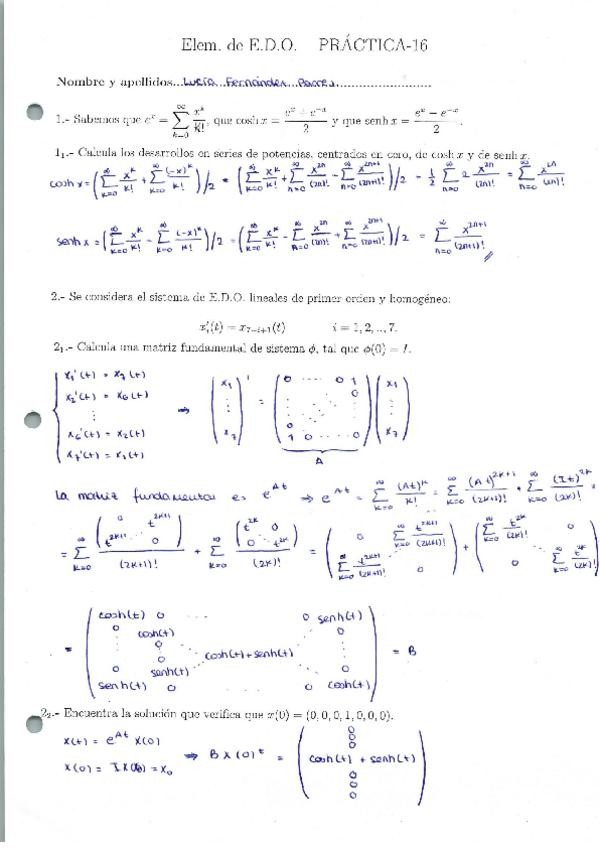 Elem. de E.D.O. PRÁCTICA-16
Nombre y apellidos...Lucía...Fernández...
1.- Sabemos que e^x = ∑_{k=0}^{∞} x^k/k!, que cosh x = (e^x + e^{-x})/2 y que senh x = (e^x − e^{-x})/2.
1₁.- Calcula los desarrollos en series de potencias, centrados en cero, de cosh x y de senh x.
cosh x = (∑_{k=0}^{∞} x^k/k! + ∑_{k=0}^{∞} (-x)^k/k!)/2 = (∑_{k=0}^{∞} x^k/k! + ∑_{n=0}^{∞} x^{2n}/(2n)! − ∑_{n=0}^{∞} x^{2n+1}/(2n+1)!)/2 = 1/2 ∑_{n=0}^{∞} 2 x^{2n}/(2n)! = ∑_{n=0}^{∞} x^{2n}/(2n)!
senh x = (∑_{k=0}^{∞} x^k/k! − ∑_{k=0}^{∞} (-x)^k/k!)/2 = (∑_{k=0}^{∞} x^k/k! − ∑_{n=0}^{∞} x^{2n}/(2n)! + ∑_{n=0}^{∞} x^{2n+1}/(2n+1)!)/2 = ∑_{n=0}^{∞} x^{2n+1}/(2n+1)!
2.- Se considera el sistema de E.D.O. lineales de primer orden y homogéneo:
x'_i(t) = x_{7−i+1}(t) i = 1, 2, .., 7.
2₁.- Calcula una matriz fundamental de sistema ϕ, tal que ϕ(0) = I.
x₁'(t) = x₇(t)
x₂'(t) = x₆(t)
⋮
x₆'(t) = x₂(t)
x₇'(t) = x₁(t)
⇒ (x₁ ⋮ x₇)' = (0 ···· 0 1 ⋮ 0 ⋮ 0 ⋮ 1 0 ···· 0) (x₁ ⋮ x₇)
A
La matriz fundamental es e^{At} ⇒ e^{At} = ∑_{k=0}^{∞} (At)^k/k! = ∑_{k=0}^{∞} (At)^{2k+1}/(2k+1)! + ∑_{k=0}^{∞} (It)^{2k}/(2k)! =
= ∑_{k=0}^{∞} (0 t^{2k+1} t^{2k+1} 0)/(2k+1)! + ∑_{k=0}^{∞} (t^{2k} 0 0 t^{2k})/(2k)! = (0 ∑_{k=0}^{∞} t^{2k+1}/(2k+1)! ∑_{k=0}^{∞} t^{2k+1}/(2k+1)! 0) + (∑_{k=0}^{∞} t^{2k}/(2k)! 0 0 ∑_{k=0}^{∞} t^{2k}/(2k)!) =
cosh(t) 0 ···· 0 senh(t)
0 cosh(t) 0
= ⋮ 0 cosh(t)+senh(t) ⋮ = B
0 senh(t) 0
senh(t) 0 0 cosh(t)
2₂.- Encuentra la solución que verifica que x(0) = (0, 0, 0, 1, 0, 0, 0).
x(t) = e^{At} x(0)
x(0) = I x(0) = x₀
⇒ B x(0)^t = (0 0 0 cosh(t) + senh(t) 0 0 0)